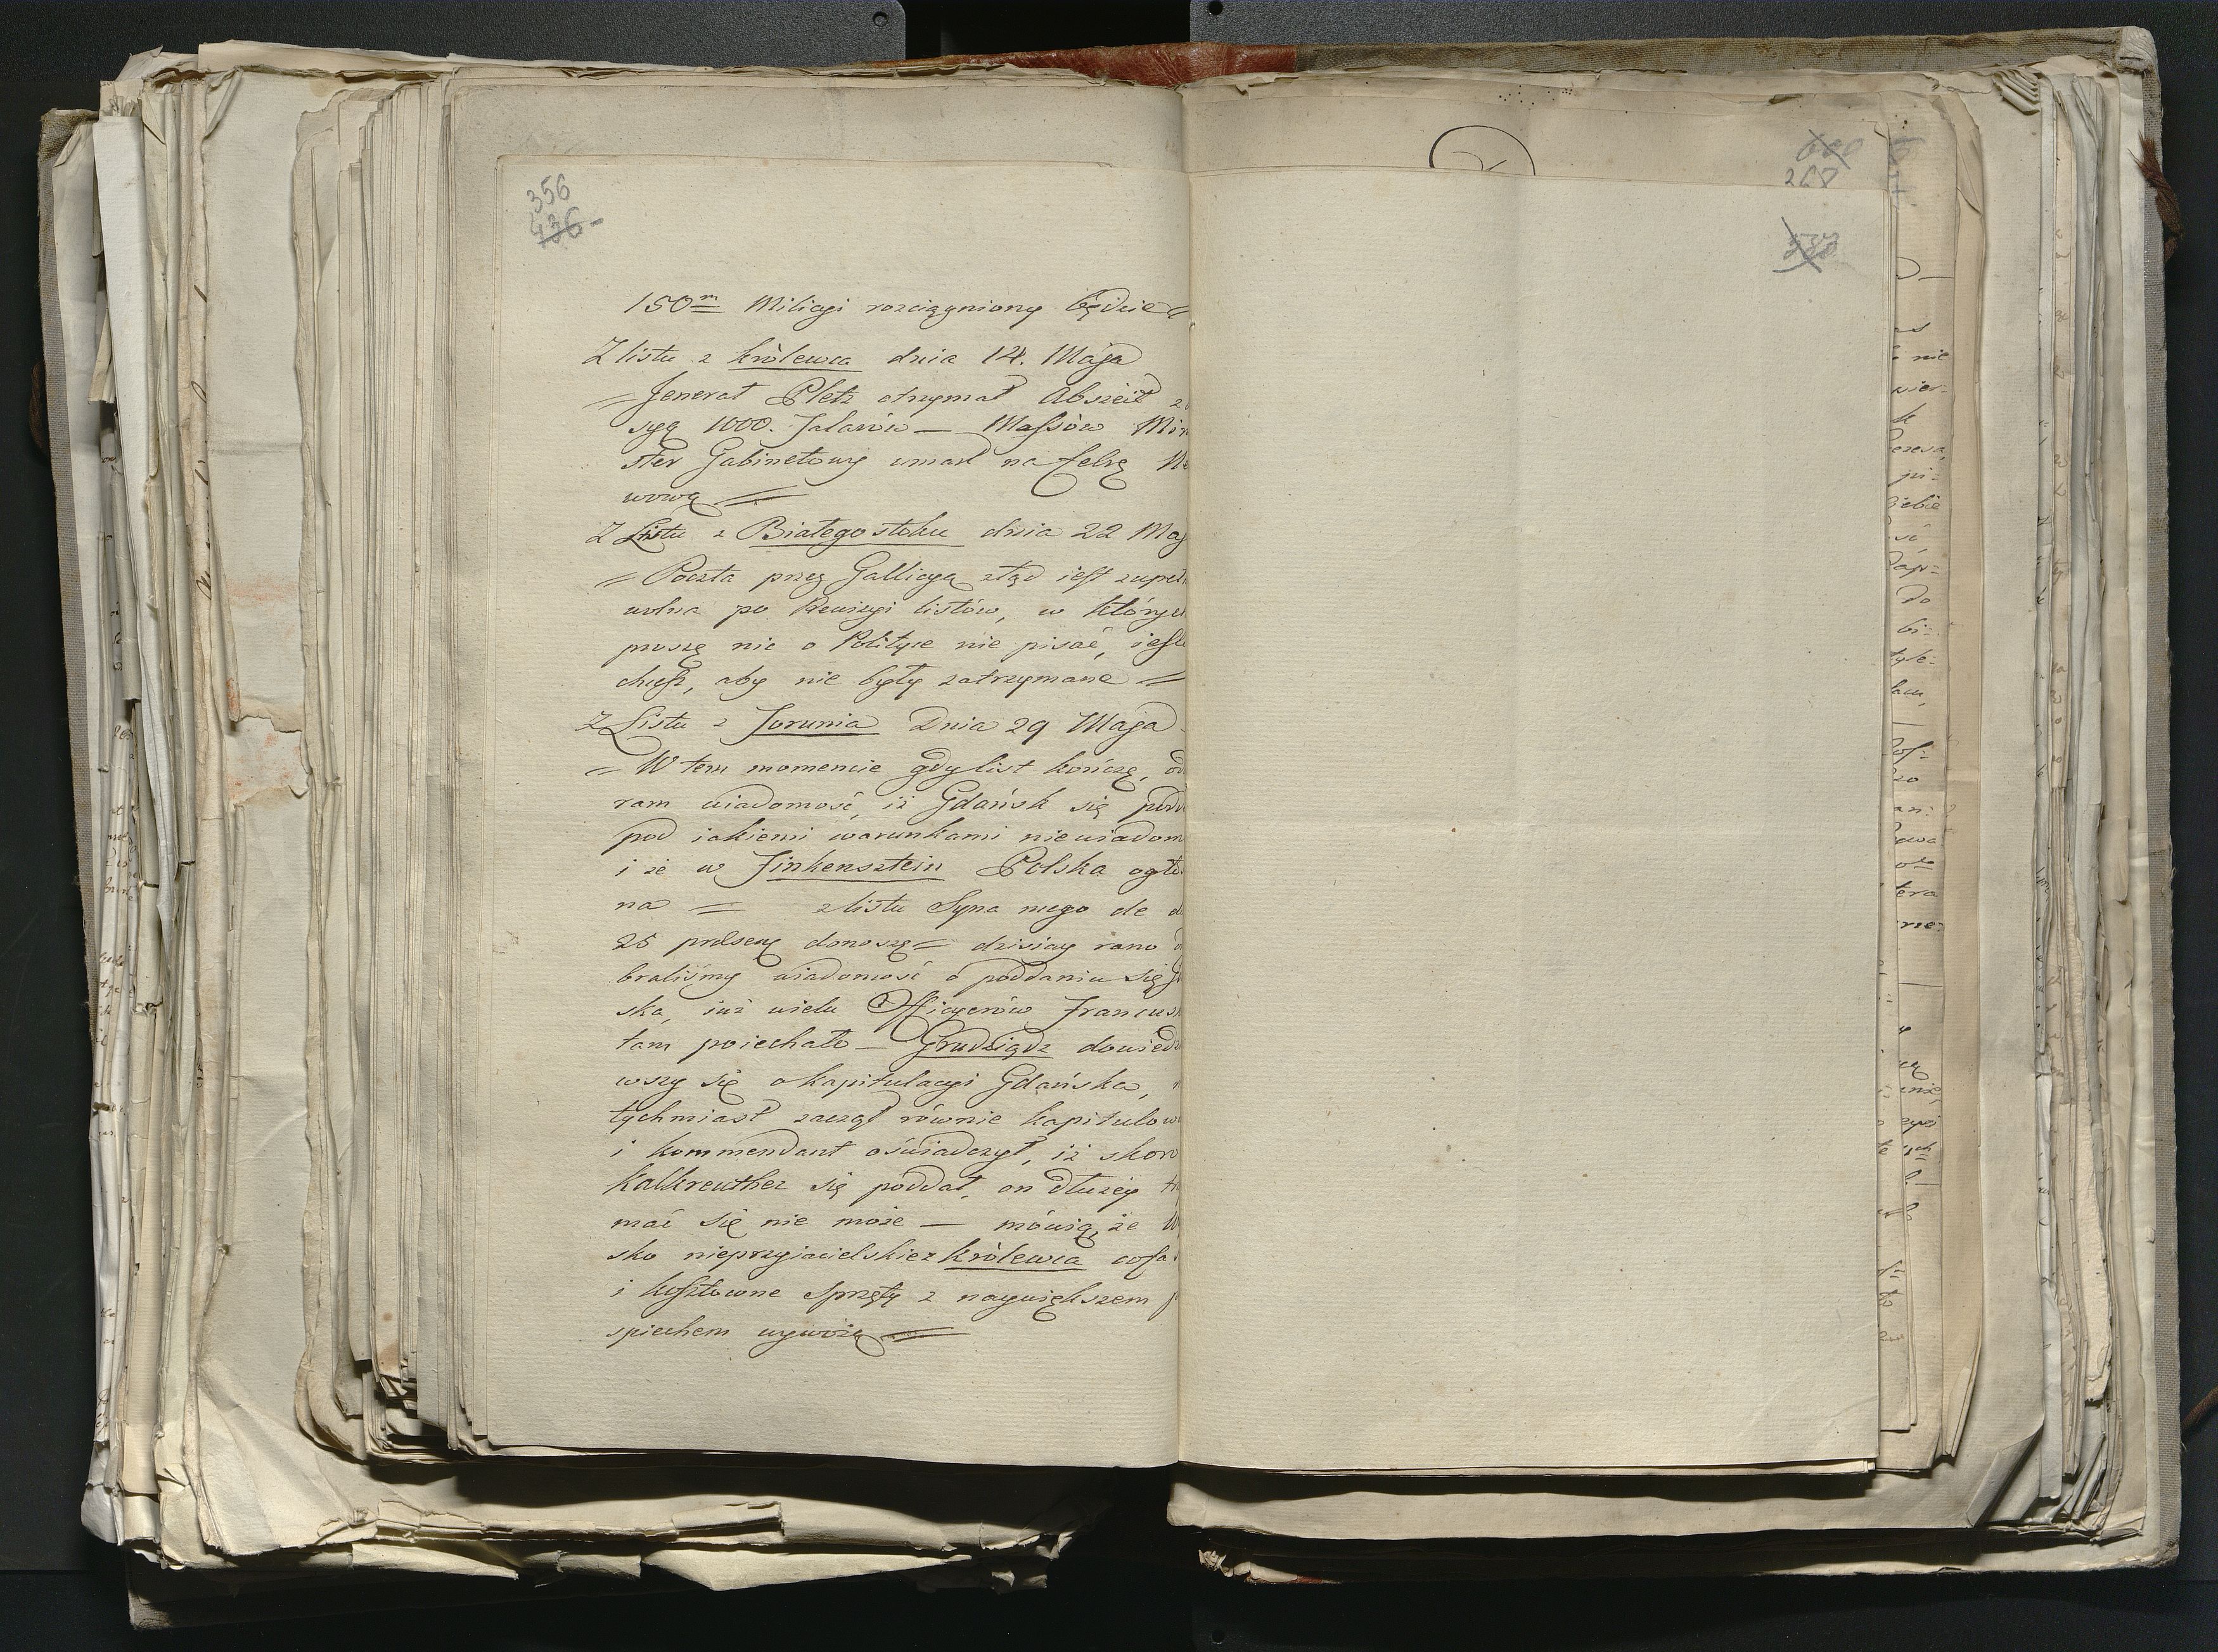 356
436
150m Milicyi rozciągniony będzie
Z listu z Królewca dnia 14. Maja
= Jenerał Pletz otrzymał Abszeit z
syą 1000. Talarów — Massów Min
ster Gabinetowy umarł na febrę Ne
wową =
Z Listu z Białegostoku dnia 22 Maj
= Poczta przez Gallicyą ztąd iest zupeł
wolna po Rewizyi listów, w których
proszę nic o Polityce nie pisać, ieśl
chcesz, aby nie były zatrzymane =
Z Listu z Torunia Dnia 29 Maja
= W tem momencie gdy list kończę, od
ram wiadomość, iż Gdańsk się podd
pod iakiemi warunkami niewiadom
i że w Finkensztein Polska ogło
na = z listu Syna mego de d
25 praesen donoszę = dzisiay rano o
braliśmy wiadomość o poddaniu się G
ska, iuż wielu Officyerów Francus
tam poiechało — Grudziądz dowiedz
wszy się o kapitulacyi Gdańska,
tychmiast zaczął równie kapitulow
i kommendant oświadczył, iż skoro
Kalkreuther się poddał, on dłużey t
mać się nie może — mówią, że W
sko nieprzyjacielskie z Królewca cofa
i kosztowne sprzęty z naywiększem p
spiechem wywożą =
600
268